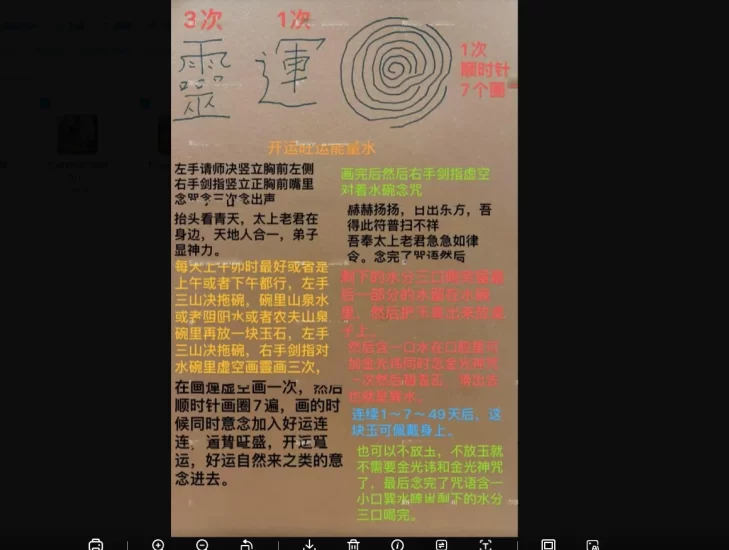 3次
1次
靈
運
1次
顺时针
7个圈
开运旺运能量水
左手请师决竖立胸前左侧
右手剑指竖立正胸前嘴里
念咒念三次念出声
抬头看青天，太上老君在
身边，天地人合一，弟子
显神力。
每天上午卯时最好或者是
上午或者下午都行，左手
三山决托碗，碗里山泉水
或者阴阳水或者农夫山泉
碗里再放一块玉石，左手
三山决托碗，右手剑指对
水碗里虚空画靈画三次，
在画運虚空画一次，然后
顺时针画圈7遍，画的时
候同时意念加入好运连
连，
旺盛，开运
运，好运自然来之类的意
念进去。
画完后然后右手剑指虚空
对着水碗念咒
赫赫扬扬，日出东方，吾
得此符普扫不祥
吾奉太上老君急急如律
令。念完了咒语然后
剩下的水分三口
后一部分的水留在小碗
里，然后把玉拿出来放
手上。
然后含一口水在口腔里
金光讳同时念金光神咒
一次然后
喷出去
连续1～7～49天后，这
块玉可佩戴身上。
也可以不放玉，不放玉就
不需要金光讳和金光神咒
了，最后念完了咒语含一
小口巽水
剩下的水分
三口喝完。